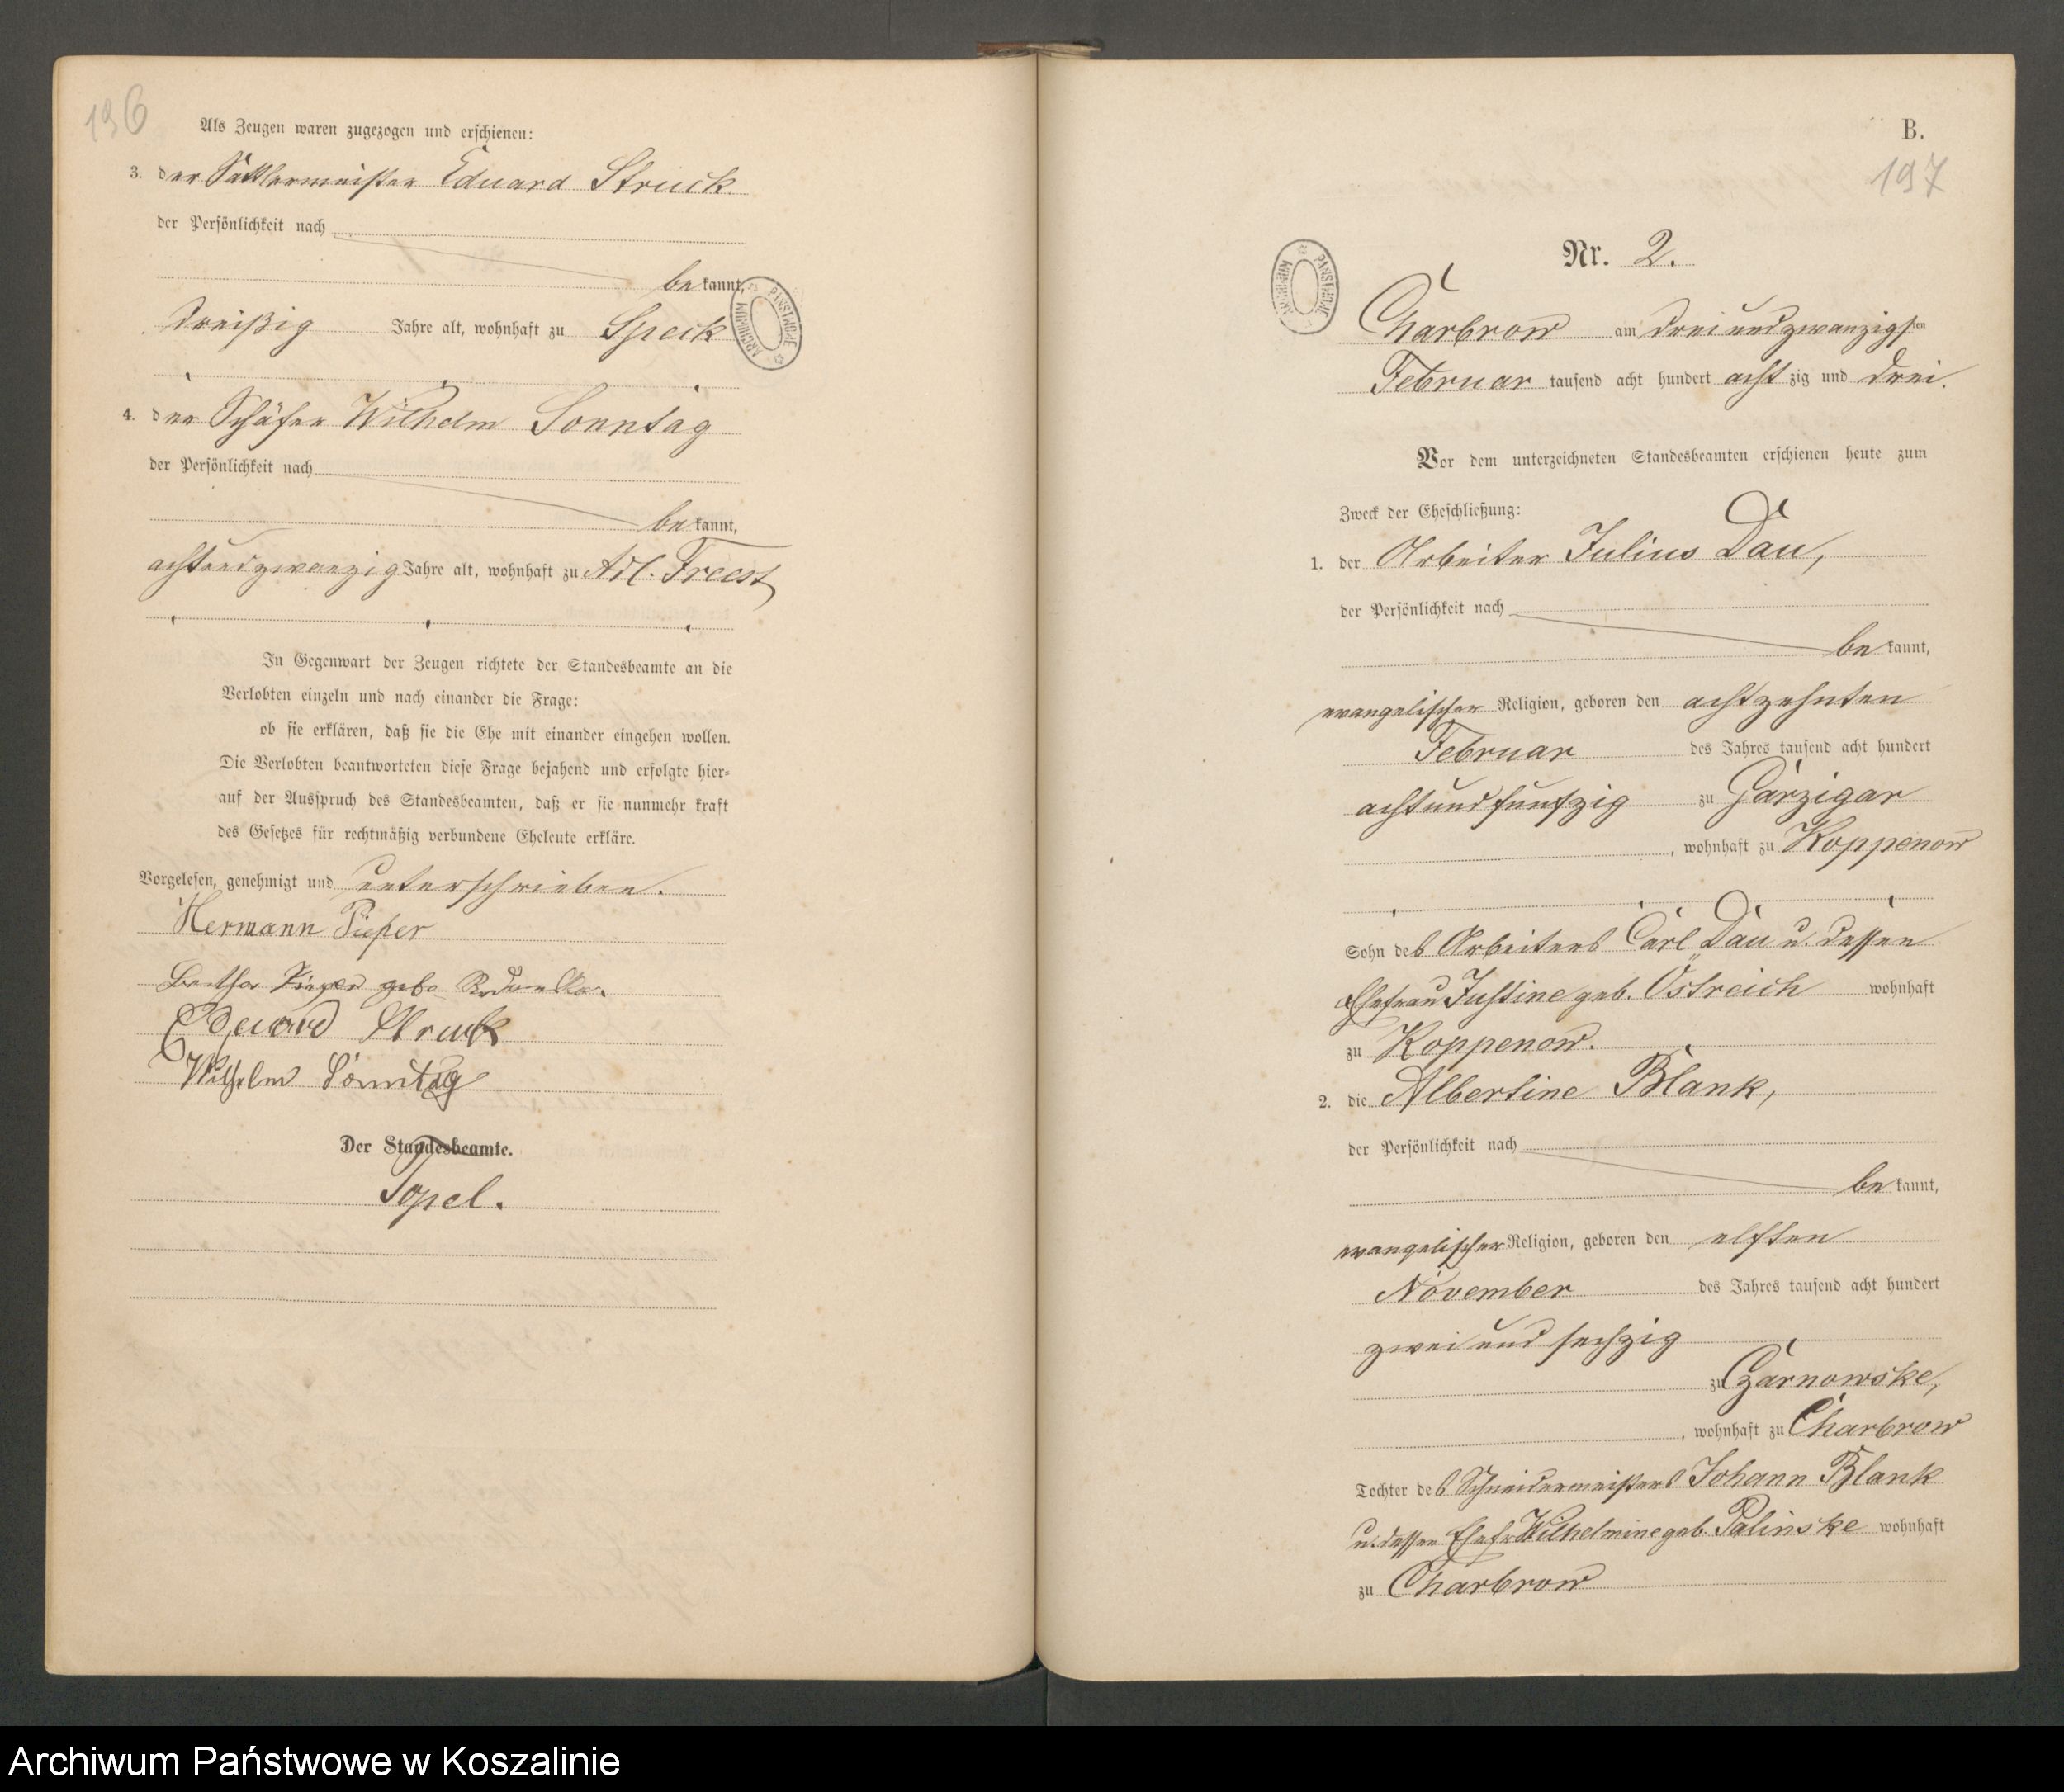 136
Als Zeugen waren zugezogen und erschienen:
3. der Sattlermeister Eduard Struck
der Persönlichkeit nach
bekannt,
dreißig Jahre alt, wohnhaft zu Speck
4. der Schäfer Wilhelm Sonntag
der Persönlichkeit nach
bekannt,
achtundzwanzig Jahre alt, wohnhaft zu Adl. Freest
In Gegenwart der Zeugen richtete der Standesbeamte an die
Verlobten einzeln und nach einander die Frage:
ob sie erklären, daß sie die Ehe mit einander eingehen wollen.
Die Verlobten beantworteten diese Frage bejahend und erfolgte hier-
auf der Ausspruch des Standesbeamten, daß er sie nunmehr kraft
des Gesetzes für rechtmäßig verbundene Eheleute erkläre.
Vorgelesen, genehmigt und unterschrieben.
Hermann Pieper
Bertha Pieper geb.
Eduard Struck
Wilhelm Sonntag
Der Standesbeamte.
Topel.
B.
197
ARCHIWUM PAŃSTWOWE
Nr. 2.
Charbrow am dreiundzwanzigsten
Februar tausend acht hundert achtzig und drei.
Vor dem unterzeichneten Standesbeamten erschienen heute zum
Zweck der Eheschließung:
1. der Arbeiter Julius Dau,
der Persönlichkeit nach
bekannt,
evangelischer Religion, geboren den achtzehnten
Februar des Jahres tausend acht hundert
achtundfunfzig zu Garzigar
, wohnhaft zu Koppenow
Sohn des Arbeiters Carl Dau u. dessen
Ehefrau Justine geb. Östreich wohnhaft
zu Koppenow.
2. die Albertine Blank,
der Persönlichkeit nach
bekannt,
evangelischer Religion, geboren den elften
November des Jahres tausend acht hundert
zwei und sechzig
zu Czarnowske,
, wohnhaft zu Charbrow
Tochter des Schneidermeisters Johann Blank
u. dessen Ehefr. Wilhelmine geb. Palinske wohnhaft
zu Charbrow
Archiwum Państwowe w Koszalinie